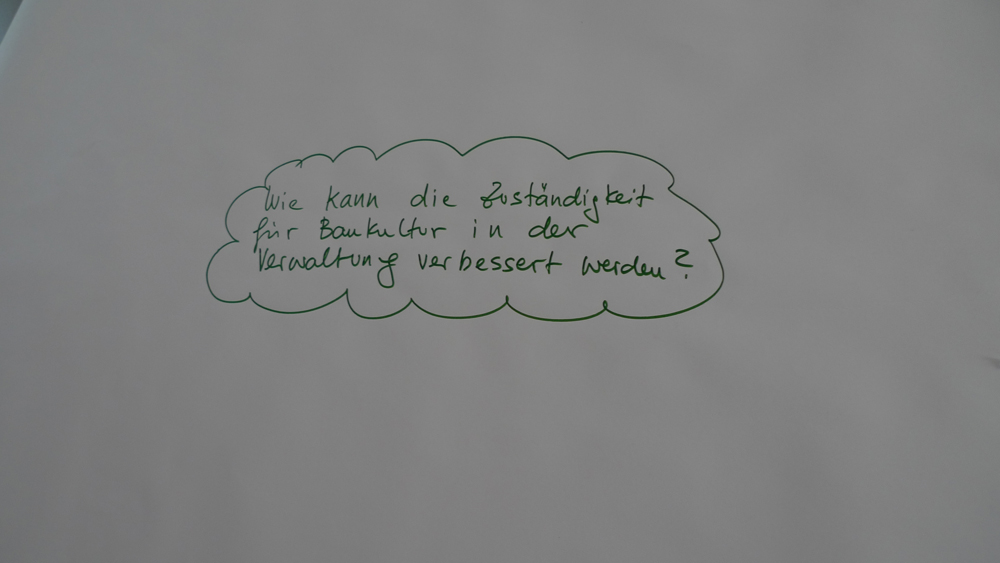 Wie kann die Zuständigkeit
für Baukultur in der
Verwaltung verbessert werden?